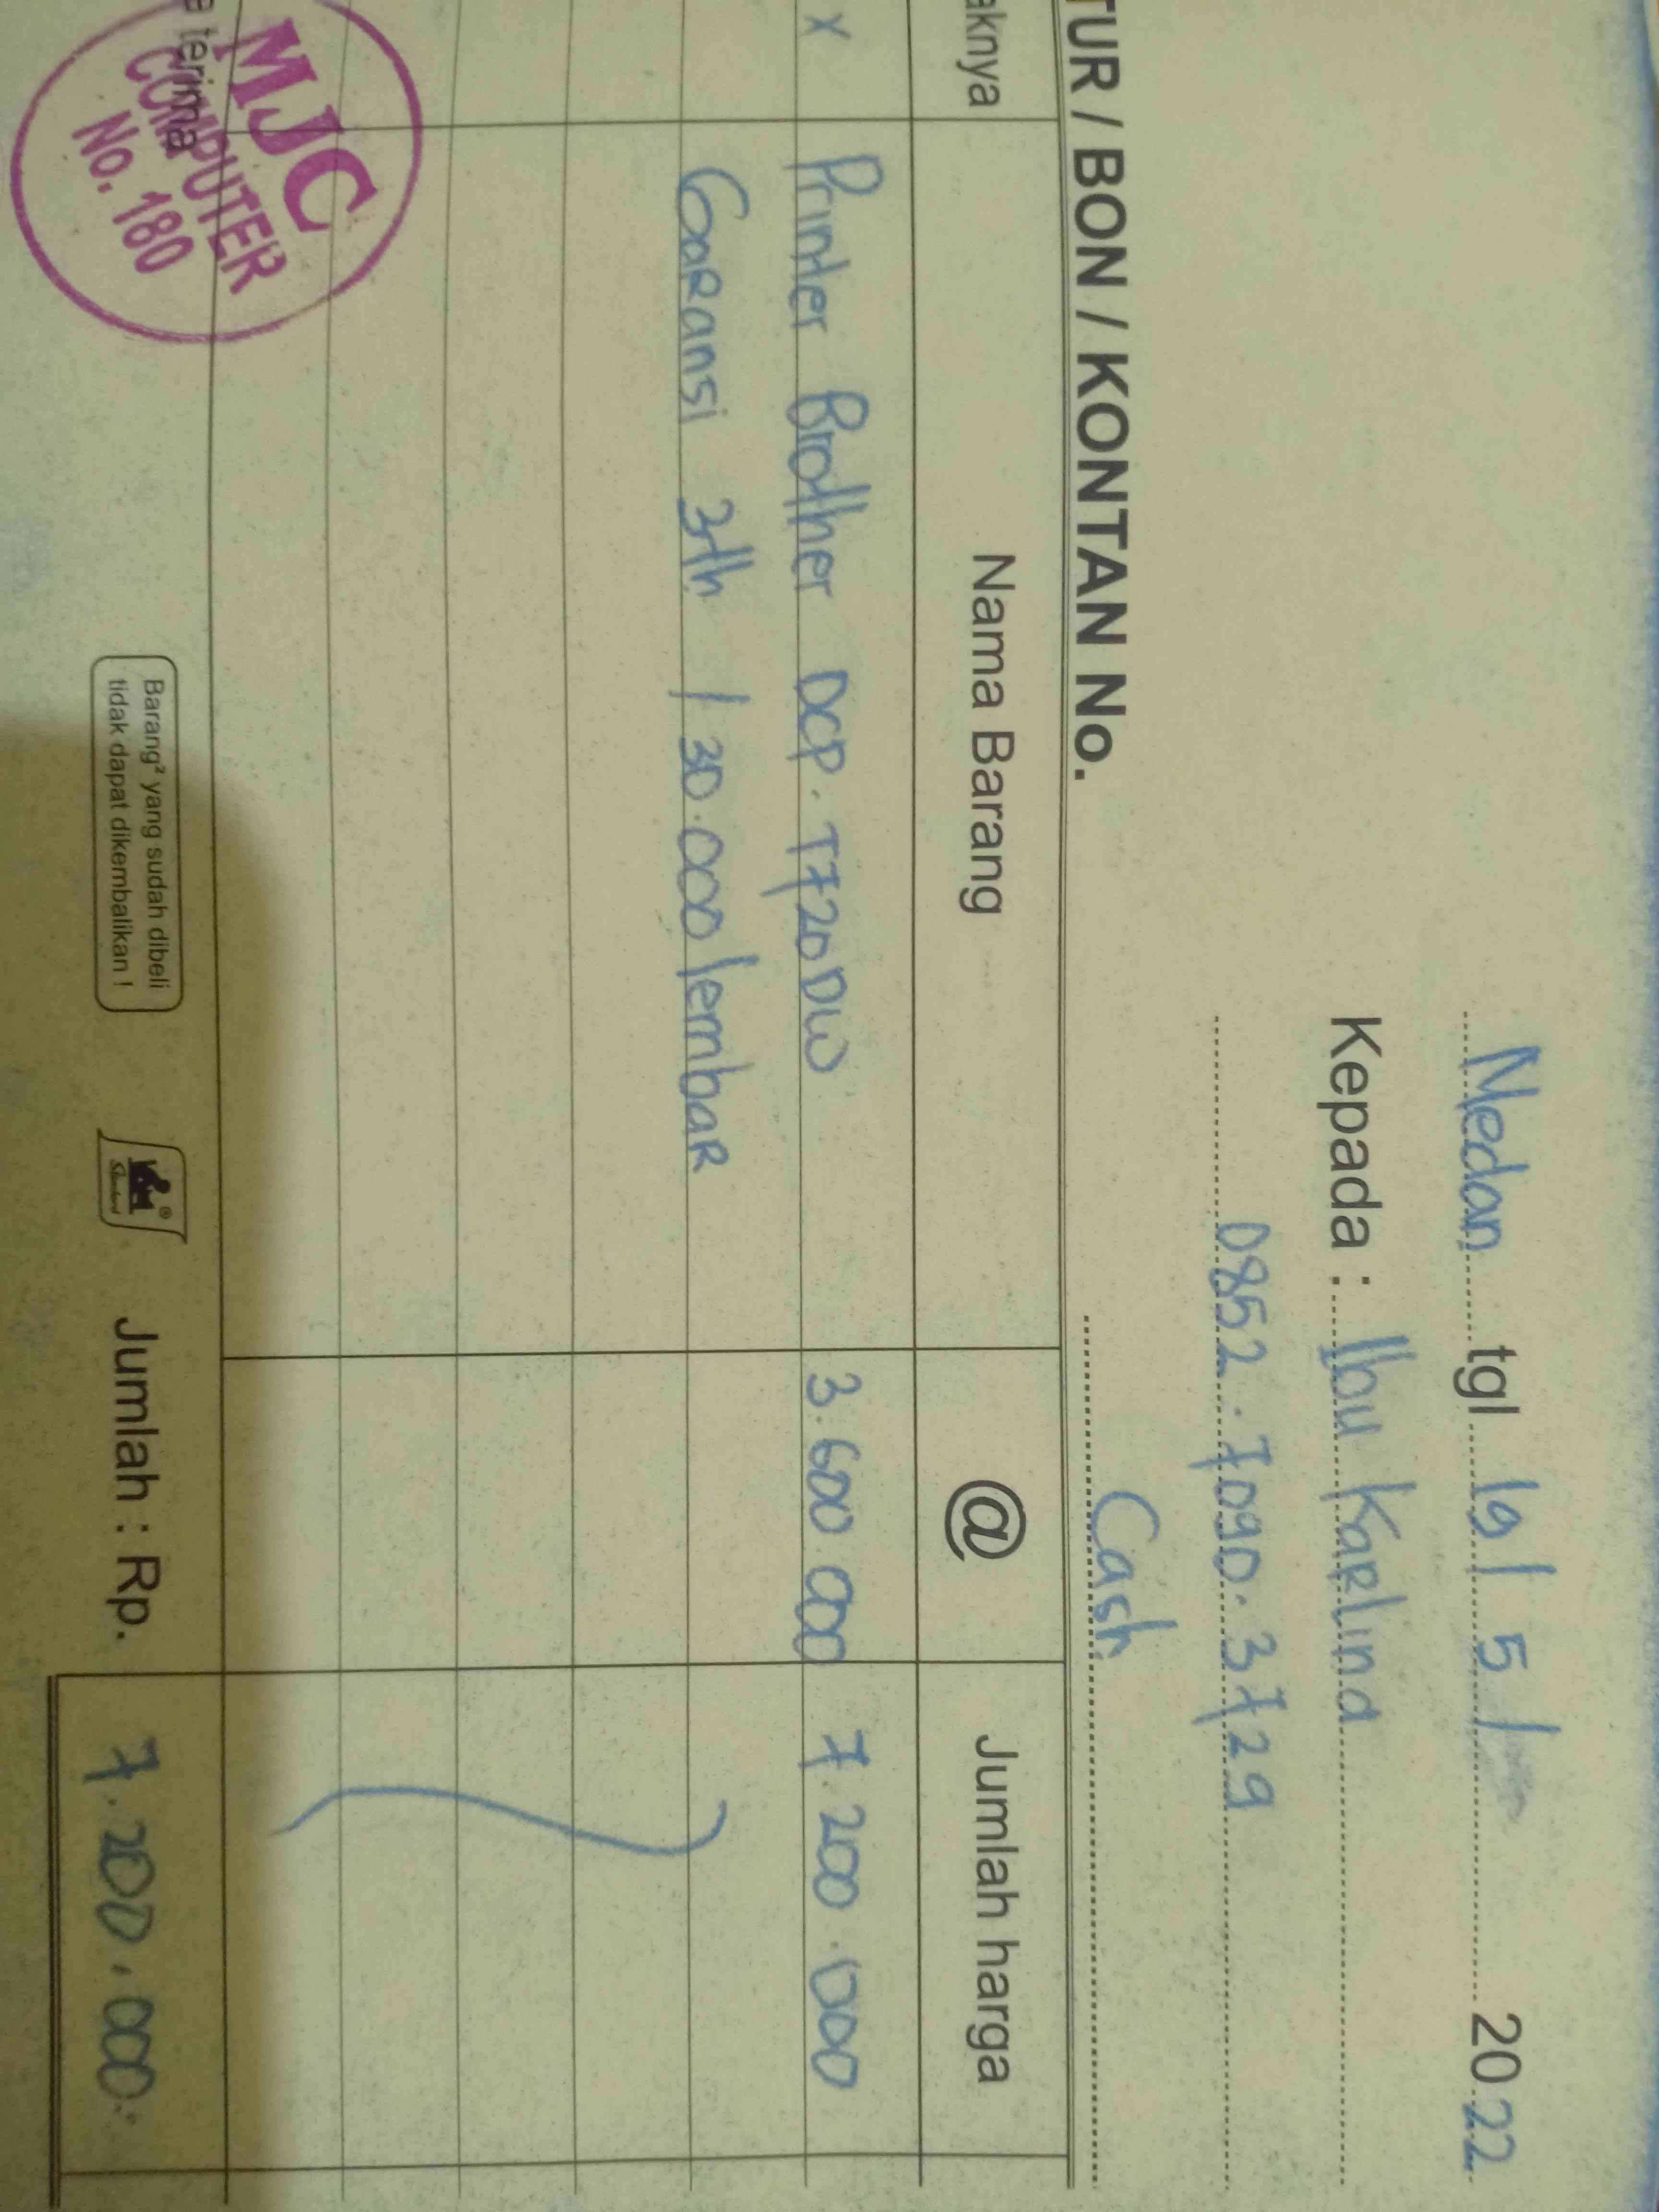 Medan tgl 19 / 5 / 2022
Kepada : Ibu Karlina
0852.7090.3729
TUR / BON / KONTAN No. Cash
aknya Nama Barang @ Jumlah harga
x Printer Brother DCP.T720DW 3.600 000 7.200.000
GaRansi 3th / 30.000 lembaR
e terima
MJC
COMPUTER
No. 180
Barang² yang sudah dibeli
tidak dapat dikembalikan !
Jumlah : Rp. 7.200.000.